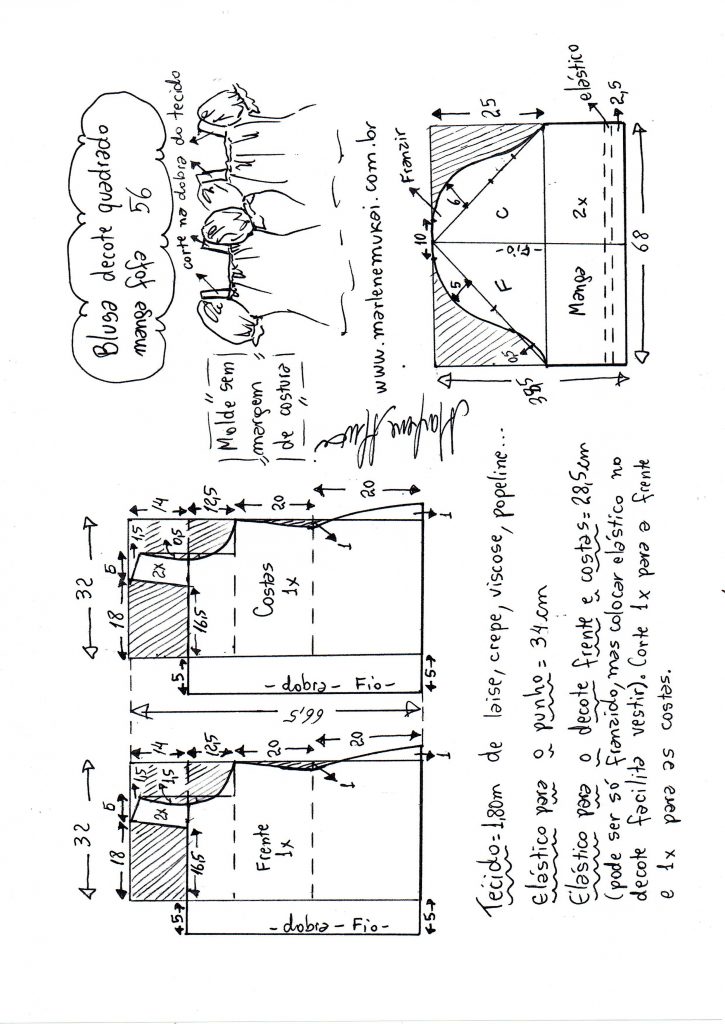 Blusa decote quadrado
manga fofa 56
corte na dobra do tecido
"Molde sem
margem
de costura"
www.marlenemukai.com.br
32
18
5
1,5
14
2x
1,5
16,5
12,5
Frente
1x
20
1
20
1
5
5
- dobra - Fio -
66,5
32
18
5
1,5
14
2x
0,5
16,5
12,5
Costas
1x
20
1
20
1
5
5
- dobra - Fio -
Franzir
10
25
6
5
0,5
F
C
- Fio -
38,5
Manga
2x
elástico
2,5
68
Tecido=1,80m de laise, crepe, viscose, popeline...
Elástico para o punho = 34cm
Elástico para o decote frente e costas = 28,5cm
(pode ser só franzido, mas colocar elástico no
decote facilita vestir). Corte 1x para a frente
e 1x para as costas.